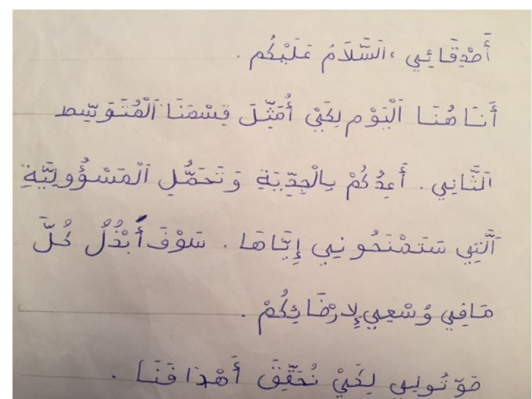 أَصْدِقَائِي ، اَلسَّلَامُ عَلَيْكُم .
أَنَا هُنَا اَلْيَوْم لِكَيْ أُمَثِّلَ قِسْمَنَا اَلْمُتَوَسِّط
اَلثَّانِي . أَعِدُكُمْ بِالْجِدِّيَةِ وَتَحَمُّلِ اَلْمَسْؤُولِيَّةِ
اَلَّتِي سَتَمْنَحُونِي إِيَّاهَا . سَوْفَ أَبْذُلُ كُلَّ
مَا فِي وُسْعِي لِإِرْضَائِكُمْ .
صَوِّتُولِي لِكَيْ نُحَقِّقَ أَهْدَافَنَا .